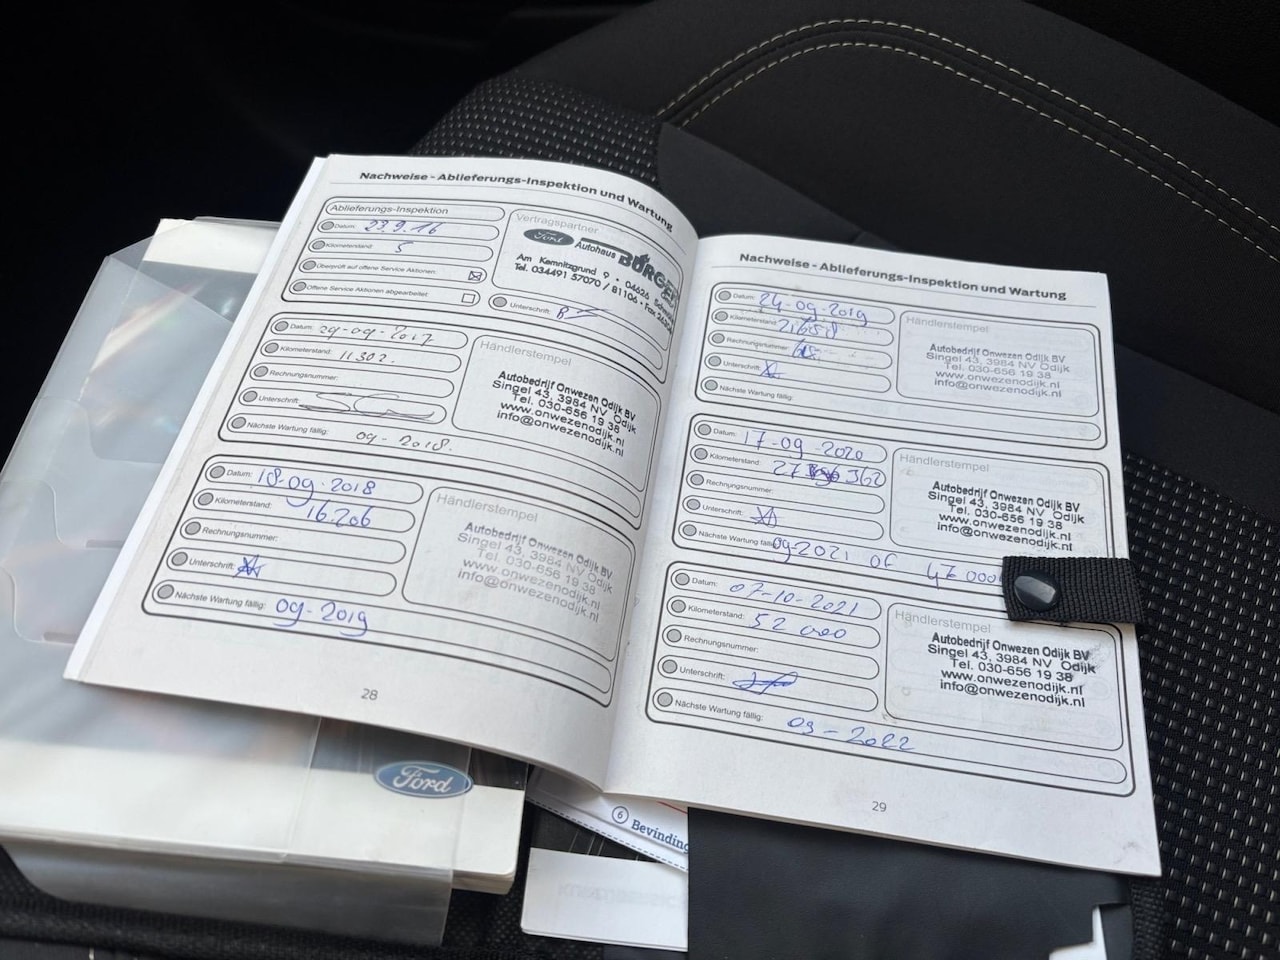 Nachweise - Ablieferungs-Inspektion und Wartung
Ablieferungs-Inspektion
Datum: 23.9.16
Kilometerstand: 5
Überprüft auf offene Service Aktionen:
Offene Service Aktionen abgearbeitet:
Vertragspartner
Ford Autohaus BÜRGER
Am Kemnitzgrund 9 • 04626
Tel. 034491 57070 / 81106 • Fax
Unterschrift:
Datum: 29-09-2017
Kilometerstand: 11302.
Rechnungsnummer:
Unterschrift:
Nächste Wartung fällig: 09-2018.
Händlerstempel
Autobedrijf Onwezen Odijk BV
Singel 43, 3984 NV Odijk
Tel. 030-656 19 38
www.onwezenodijk.nl
info@onwezenodijk.nl
Datum: 18-09-2018
Kilometerstand: 16.206
Rechnungsnummer:
Unterschrift:
Nächste Wartung fällig: 09-2019
Händlerstempel
Autobedrijf Onwezen Odijk BV
Singel 43, 3984 NV Odijk
Tel. 030-656 19 38
www.onwezenodijk.nl
info@onwezenodijk.nl
28
Nachweise - Ablieferungs-Inspektion und Wartung
Datum: 24-09-2019
Kilometerstand: 21658
Rechnungsnummer:
Unterschrift:
Nächste Wartung fällig:
Händlerstempel
Autobedrijf Onwezen Odijk BV
Singel 43, 3984 NV Odijk
Tel. 030-656 19 38
www.onwezenodijk.nl
info@onwezenodijk.nl
Datum: 17-09-2020
Kilometerstand: 27 362
Rechnungsnummer:
Unterschrift:
Nächste Wartung fällig: 09-2021 OF 47 000
Händlerstempel
Autobedrijf Onwezen Odijk BV
Singel 43, 3984 NV Odijk
Tel. 030-656 19 38
www.onwezenodijk.nl
info@onwezenodijk.nl
Datum: 07-10-2021
Kilometerstand: 52 000
Rechnungsnummer:
Unterschrift:
Nächste Wartung fällig: 09-2022
Händlerstempel
Autobedrijf Onwezen Odijk BV
Singel 43, 3984 NV Odijk
Tel. 030-656 19 38
www.onwezenodijk.nl
info@onwezenodijk.nl
29
Ford
6 Bevinding